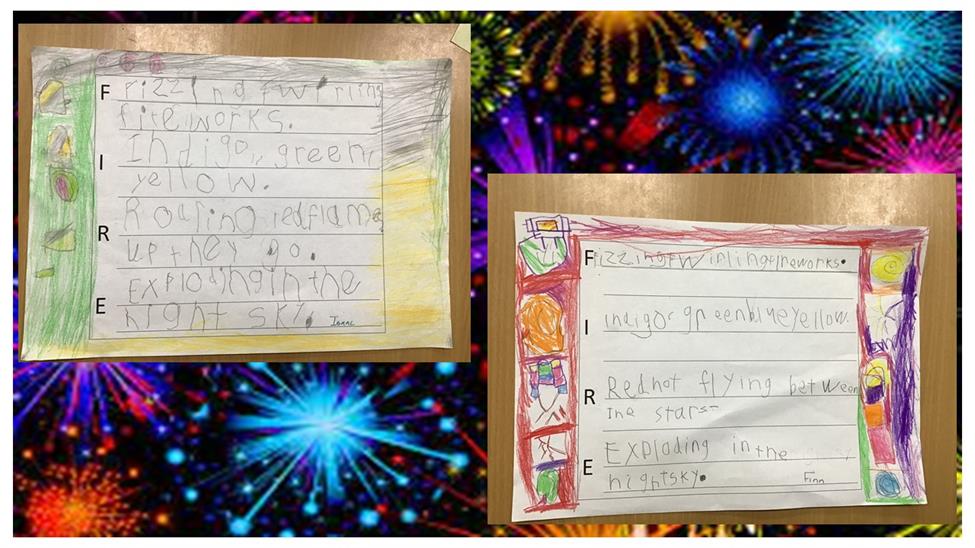 F rizzind fwirling
fireworks.
I Indigo, green,
yellow.
R Roaring red flame
up they go.
E Exploding in the
night sky.
Isaac
F Fizzing fwirlingfireworks.
I indigor greenblueyellow.
R Rednot flying between
the stars
E Exploding in the
nightsky.
Finn